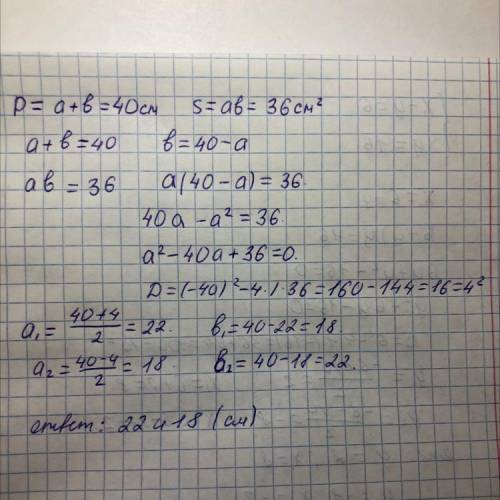 P = a+b = 40 см   S = ab = 36 см²
a+b = 40   b = 40-a
ab = 36   a(40-a) = 36.
40a - a² = 36.
a² - 40a + 36 = 0.
D = (-40)² - 4·1·36 = 160 - 144 = 16 = 4²
a₁ = (40+4)/2 = 22.   b₁ = 40-22 = 18.
a₂ = (40-4)/2 = 18   b₂ = 40-18 = 22.
ответ: 22 и 18 (см)